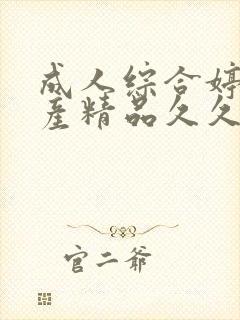 成人综合婷
产精品久久
官二爷